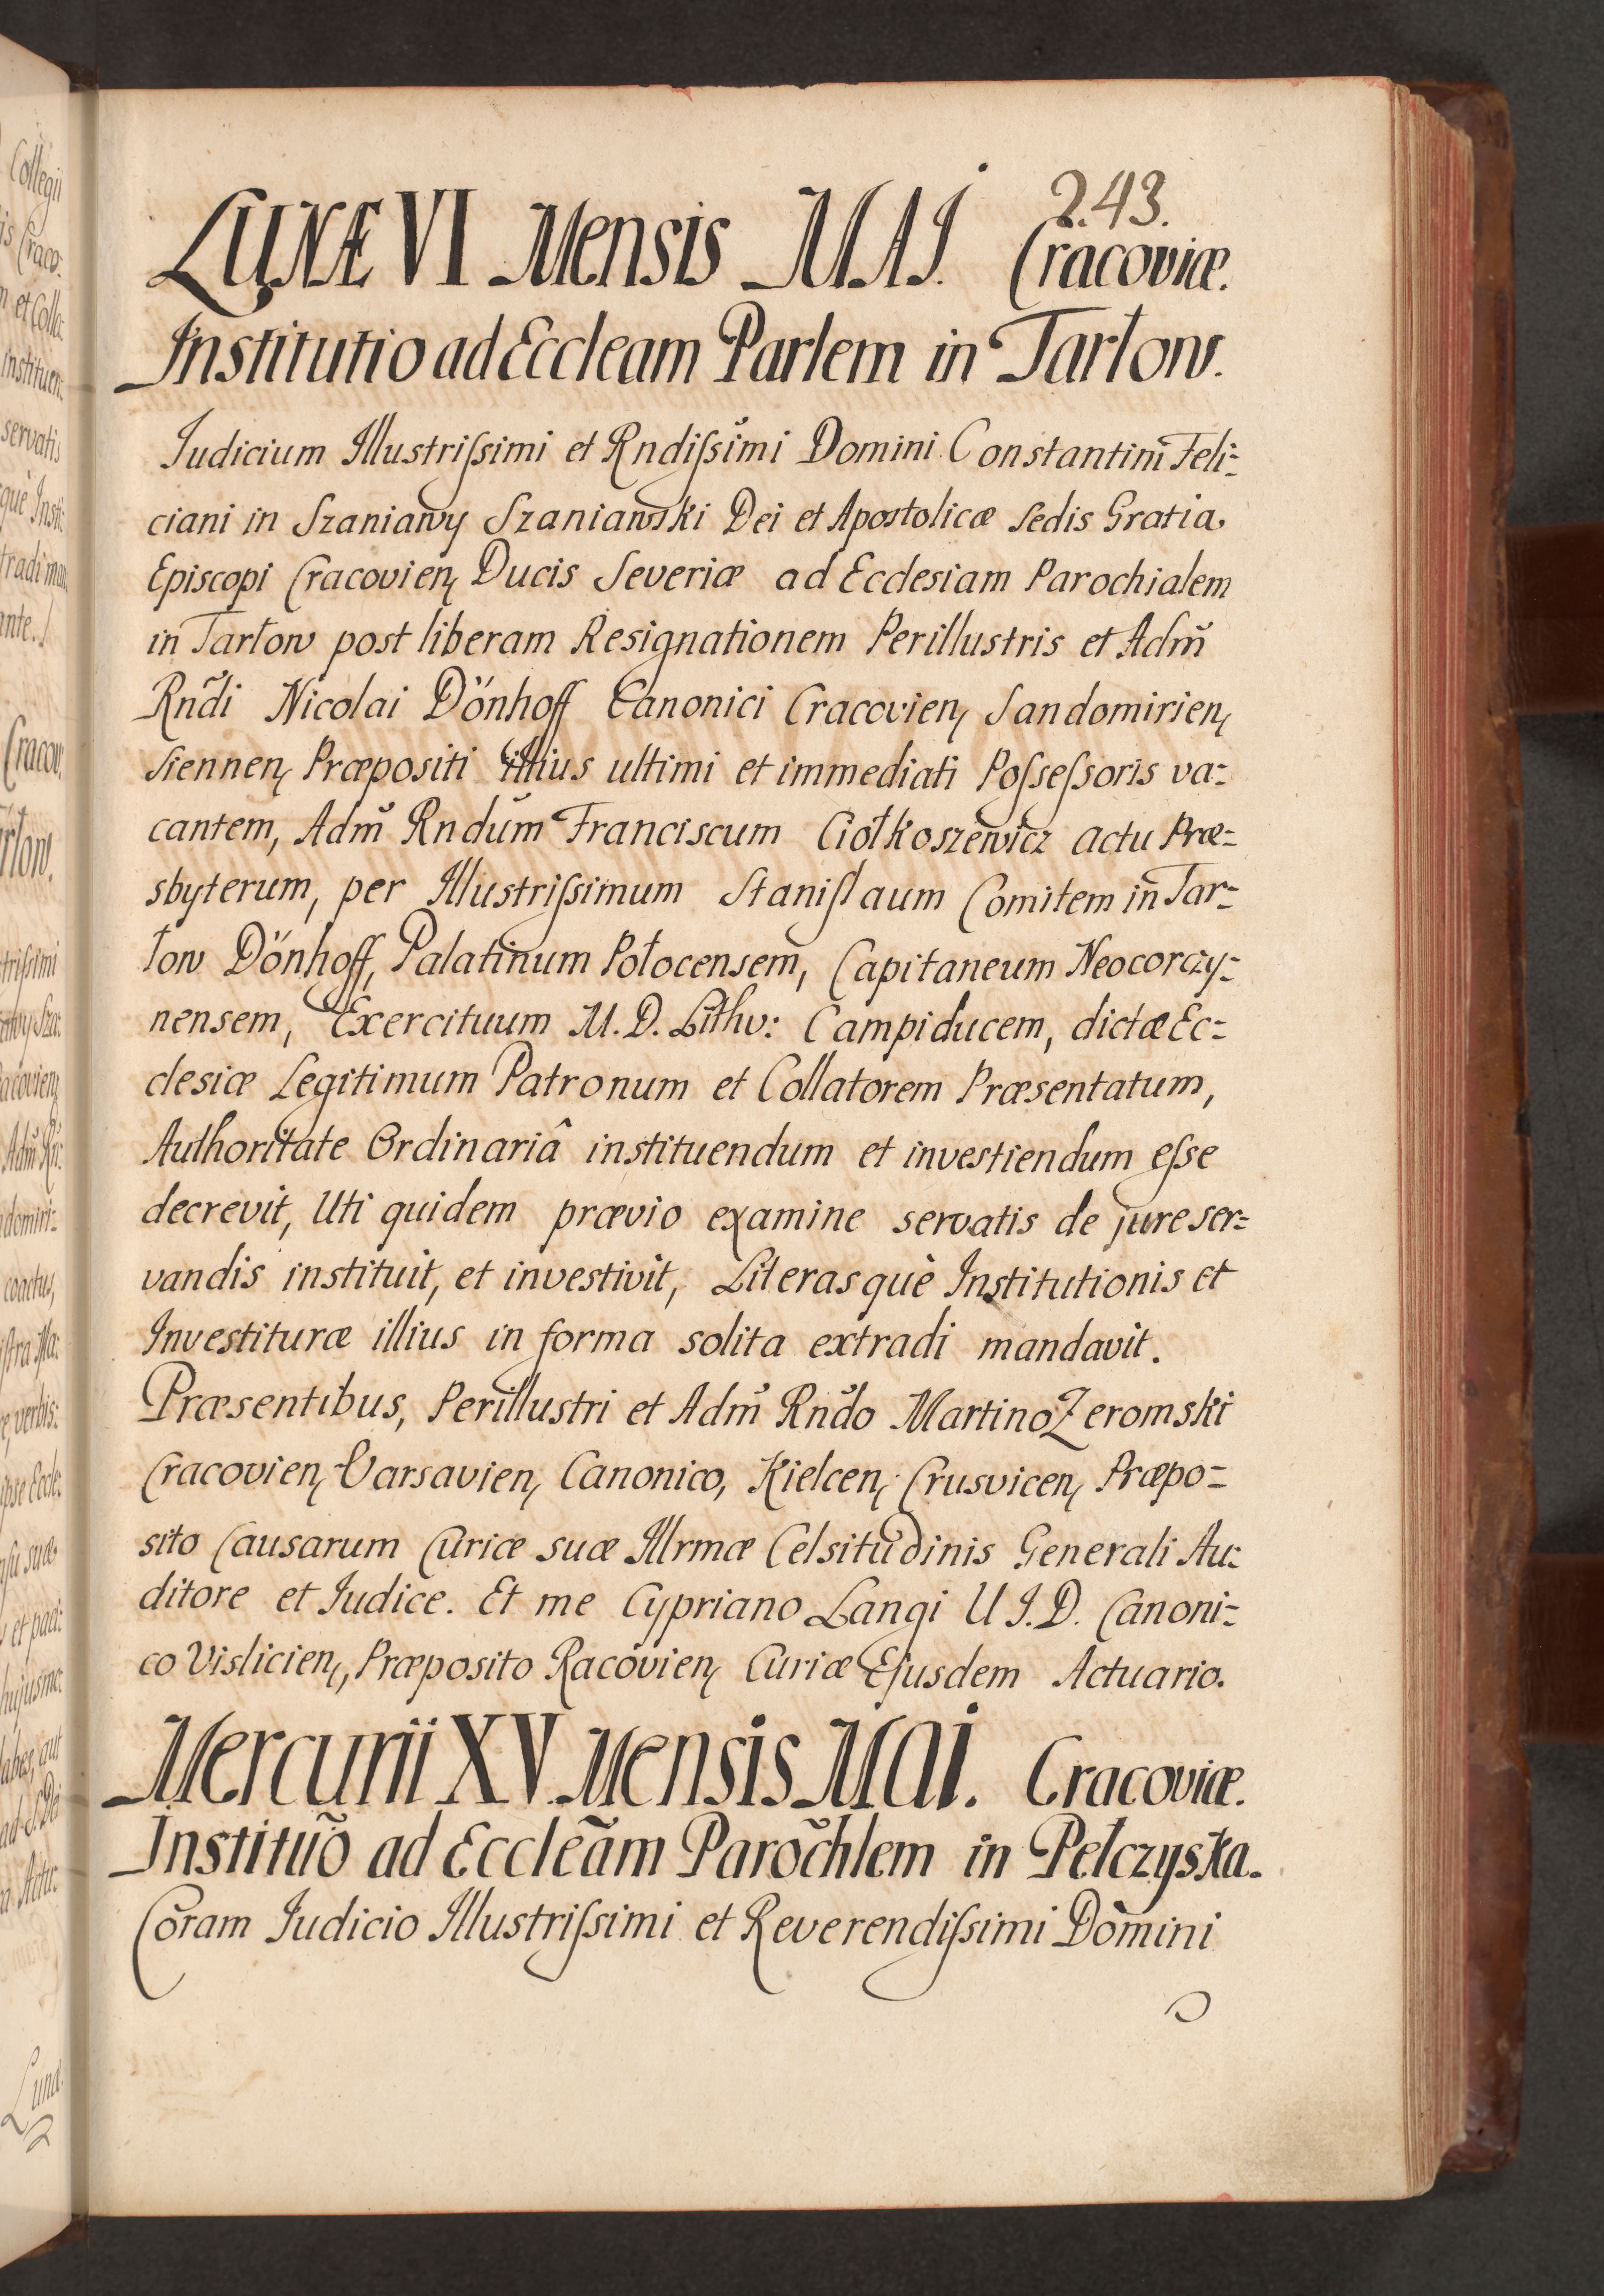 243.
LUNÆ VI Mensis MAJ. Cracoviæ.
Institutio ad Eccleam Parlem in Tarłow.
Judicium Illustriſsimi et Rndiſsimi Domini Constantini Feli=
ciani in Szaniawy Szaniawski Dei et Apostolicæ Sedis Gratia,
Episcopi Cracovien, Ducis Severiæ ad Ecclesiam Parochialem
in Tarłow post liberam Resignationem Perillustris et Adm̃
Rñdi Nicolai Dönhoff Canonici Cracovien, Sandomirien,
Siennen, Præpositi illius ultimi et immediati Poſseſsoris va=
cantem, Adm̃ Rndũm Franciscum Ciołkoszewicz actu Præ=
sbyterum, per Illustriſsimum Staniſlaum Comitem in Tar=
łow Dönhoff, Palatinum Połocensem, Capitaneum Neocorczy=
nensem, Exercituum M. D. Lithv: Campiducem, dictæ Ec=
clesiæ Legitimum Patronum et Collatorem Præsentatum,
Authoritate Ordinariâ instituendum et investiendum eſse
decrevit, Uti quidem prævio examine servatis de jure ser=
vandis instituit, et investivit, Literasquè Institutionis et
Investituræ illius in forma solita extradi mandavit.
Præsentibus, Perillustri et Adm̃ Rñdo Martino Zeromski
Cracovien, Varsavien, Canonico, Kielcen, Crusvicen, Præpo=
sito Causarum Curiæ suæ Illrmæ Celsitudinis Generali Au=
ditore et Iudice. Et me Cypriano Langi U. J. D. Canoni=
co Vislicien, Præposito Racovien, Curiæ Ejusdem Actuario.
Mercurii XV Mensis Mai. Cracoviæ.
Instituõ ad Eccleãm Parochlem in Pełczyska.
Coram Iudicio Illustriſsimi et Reverendiſsimi Domini